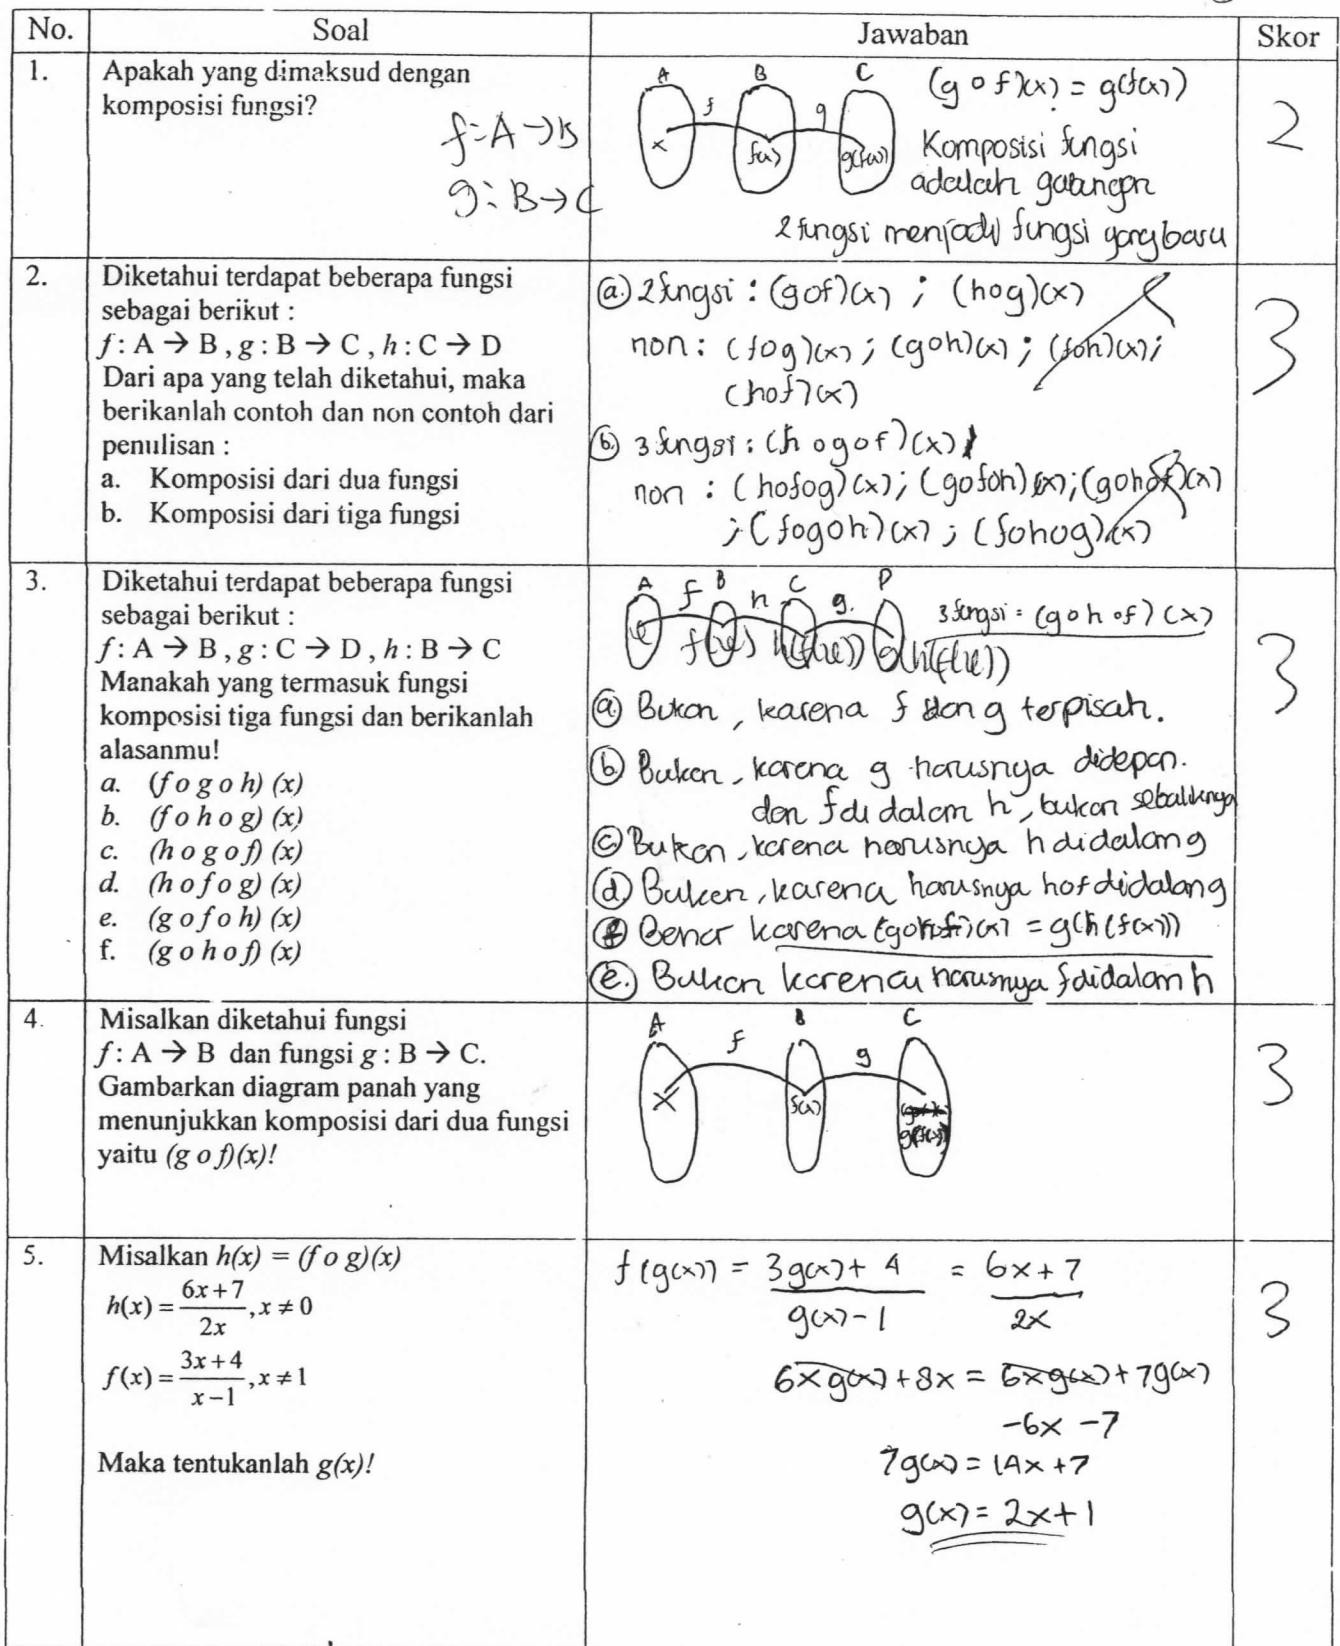 No. Soal Jawaban Skor
1. Apakah yang dimaksud dengan
komposisi fungsi?
f: A → B
g: B → C
A B C
f g
x f(x) g(f(x))
(g o f)(x) = g(f(x))
Komposisi fungsi
adalah gabungan
2 fungsi menjadi fungsi yang baru
2
2. Diketahui terdapat beberapa fungsi
sebagai berikut :
f : A → B , g : B → C , h : C → D
Dari apa yang telah diketahui, maka
berikanlah contoh dan non contoh dari
penulisan :
a. Komposisi dari dua fungsi
b. Komposisi dari tiga fungsi
a. 2 fungsi : (gof)(x) ; (hog)(x)
non : (fog)(x) ; (goh)(x) ; (foh)(x);
(hof)(x)
b. 3 fungsi : (h o g o f)(x)
non : (hofog)(x); (gofoh)(x); (gohof)(x)
; (fogoh)(x) ; (fohog)(x)
3
3. Diketahui terdapat beberapa fungsi
sebagai berikut :
f : A → B , g : C → D , h : B → C
Manakah yang termasuk fungsi
komposisi tiga fungsi dan berikanlah
alasanmu!
a. (f o g o h) (x)
b. (f o h o g) (x)
c. (h o g o f) (x)
d. (h o f o g) (x)
e. (g o f o h) (x)
f. (g o h o f) (x)
A f B h C g. D
f(x) h(f(x)) g(h(f(x)))
3 fungsi = (g o h o f) (x)
a. Bukan, karena f dan g terpisah.
b. Bukan, karena g harusnya didepan.
dan f di dalam h, bukan sebaliknya
c. Bukan, karena harusnya h didalam g
d. Bukan, karena harusnya hof didalam g
f. Benar karena (gohof)(x) = g(h(f(x)))
e. Bukan karena harusnya f didalam h
3
4. Misalkan diketahui fungsi
f : A → B dan fungsi g : B → C.
Gambarkan diagram panah yang
menunjukkan komposisi dari dua fungsi
yaitu (g o f)(x)!
A B C
f g
x f(x) g(f(x))
3
5. Misalkan h(x) = (f o g)(x)
h(x) = (6x+7)/(2x), x ≠ 0
f(x) = (3x+4)/(x−1), x ≠ 1
Maka tentukanlah g(x)!
f(g(x)) = (3g(x) + 4)/(g(x) − 1) = (6x + 7)/(2x)
6xg(x) + 8x = 6xg(x) + 7g(x)
−6x − 7
7g(x) = 14x + 7
g(x) = 2x + 1
3